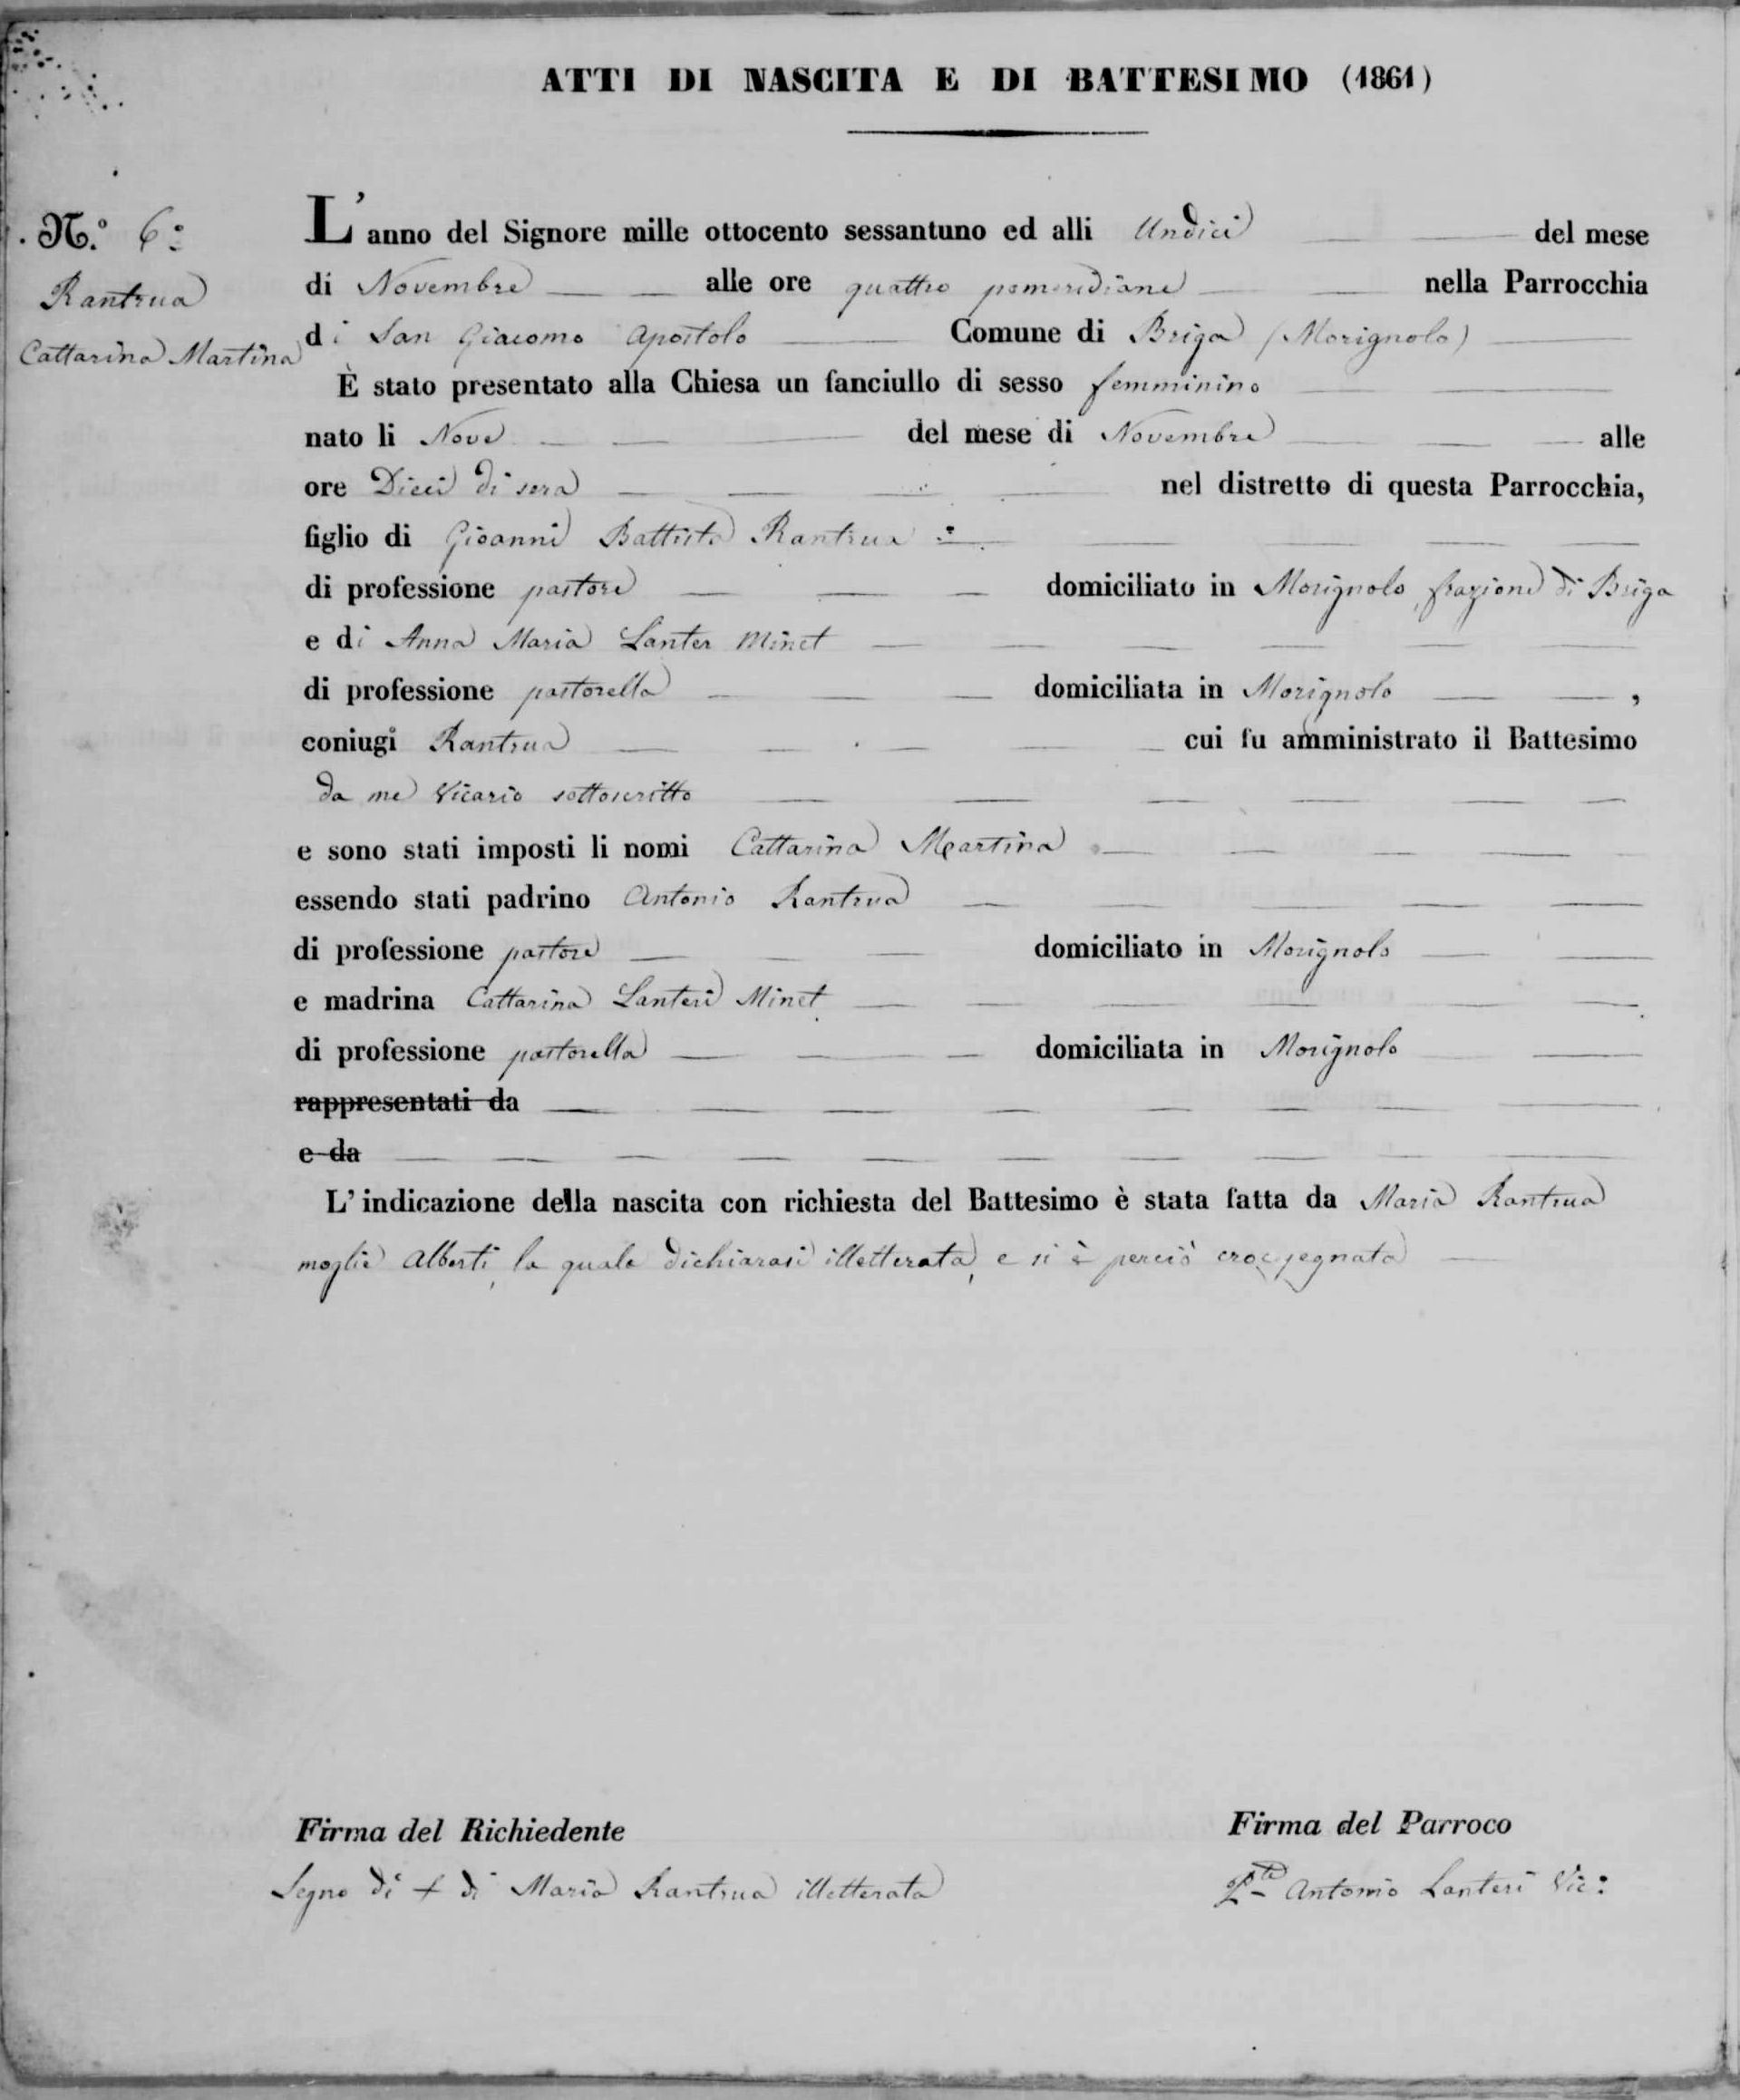 ATTI DI NASCITA E DI BATTESIMO (1861)
N.º 6:
Rantrua
Cattarina Martina
L'anno del Signore mille ottocento sessantuno ed alli Undici del mese
di Novembre alle ore quattro pomeridiane nella Parrocchia
di San Giacomo Apostolo Comune di Briga (Morignolo)
È stato presentato alla Chiesa un fanciullo di sesso femminino
nato li Nove del mese di Novembre alle
ore Dieci di sera nel distretto di questa Parrocchia,
figlio di Gioanni Battista Rantrua
di professione pastore domiciliato in Morignolo, frazione di Briga
e di Anna Maria Lanter Minet
di professione pastorella domiciliata in Morignolo ,
coniugi Rantrua cui fu amministrato il Battesimo
da me Vicario sottoscritto
e sono stati imposti li nomi Cattarina Martina
essendo stati padrino Antonio Rantrua
di professione pastore domiciliato in Morignolo
e madrina Cattarina Lanteri Minet
di professione pastorella domiciliata in Morignolo
rappresentati da
e da
L'indicazione della nascita con richiesta del Battesimo è stata fatta da Maria Rantrua
moglie Alberti, la quale dichiarasi illetterata, e si è perciò crocesegnata
Firma del Richiedente
Segno di + di Maria Rantrua illetterata
Firma del Parroco
Antonio Lanteri Vic: